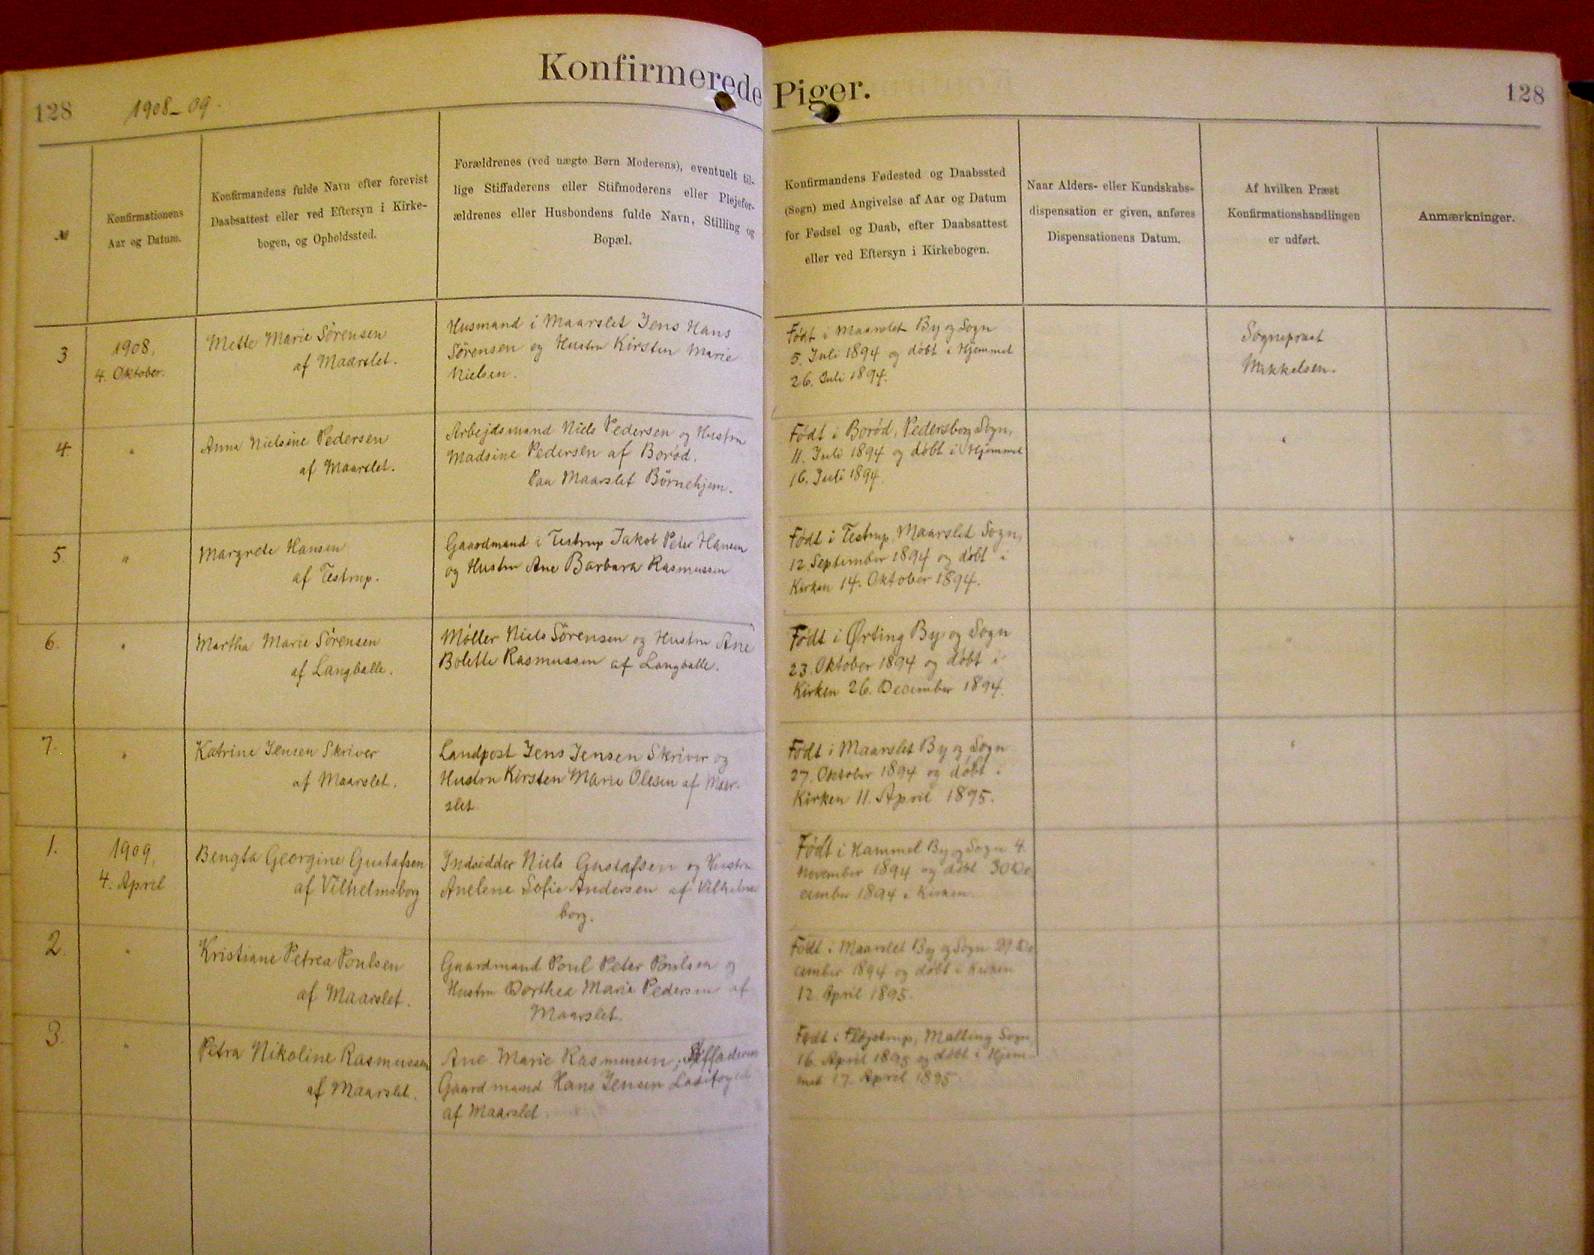 Konfirmerede Piger.
128
1908-09.
128
№
Konfirmationens
Aar og Datum.
Konfirmandens fulde Navn efter forevist
Daabsattest eller ved Eftersyn i Kirke-
bogen, og Opholdssted.
Forældrenes (ved uægte Børn Moderens), eventuelt til-
lige Stiffaderens eller Stifmoderens eller Plejefor-
ældrenes eller Husbondens fulde Navn, Stilling og
Bopæl.
Konfirmandens Fødested og Daabssted
(Sogn) med Angivelse af Aar og Datum
for Fødsel og Daab, efter Daabsattest
eller ved Eftersyn i Kirkebogen.
Naar Alders- eller Kundskabs-
dispensation er given, anføres
Dispensationens Datum.
Af hvilken Præst
Konfirmationshandlingen
er udført.
Anmærkninger.
3
1908,
4. Oktober.
Mette Marie Sørensen
af Maarslet.
Husmand i Maarslet Jens Hans
Sørensen og Hustru Kirsten Marie
Nielsen.
Født i Maarslet By og Sogn
5. Juli 1894 og døbt i Hjemmet
26. Juli 1894.
Sognepræst
Mikkelsen.
4
"
Anna Nielsine Pedersen
af Maarslet.
Arbejdsmand Niels Pedersen og Hustru
Madsine Pedersen af Borød.
Paa Maarslet Børnehjem.
Født i Borød, Pedersborg Sogn,
11. Juli 1894 og døbt i Hjemmet
16. Juli 1894.
"
5
"
Margrete Hansen
af Testrup.
Gaardmand i Testrup Jakob Peter Hansen
og Hustru Ane Barbara Rasmussen
Født i Testrup, Maarslet Sogn,
12. September 1894 og døbt i
Kirken 14. Oktober 1894.
"
6.
"
Martha Marie Sørensen
af Langballe.
Møller Niels Sørensen og Hustru Ane
Bolette Rasmussen af Langballe.
Født i Ørting By og Sogn
23. Oktober 1894 og døbt i
Kirken 26. December 1894.
"
7.
"
Katrine Jensen Skriver
af Maarslet.
Landpost Jens Jensen Skriver og
Hustru Kirsten Marie Olesen af Maar-
slet.
Født i Maarslet By og Sogn
27. Oktober 1894 og døbt i
Kirken 11. April 1895.
"
1.
1909,
4. April
Bengta Georgine Gustafsen
af Vilhelmsborg
Indsidder Niels Gustafsen og Hustru
Anelene Sofie Andersen af Vilhelms
borg.
Født i Hammel By og Sogn 4.
November 1894 og døbt 30 De
cember 1894 i Kirken.
2
"
Kristiane Petrea Poulsen
af Maarslet.
Gaardmand Poul Peter Poulsen og
Hustru Dorthea Marie Pedersen af
Maarslet.
Født i Maarslet By og Sogn 29. De
cember 1894 og døbt i Kirken
12. April 1895.
3.
"
Petra Nikoline Rasmussen
af Maarslet.
Ane Marie Rasmussen, Stiffaderen
Gaardmand Hans Jensen Ladefoged
af Maarslet.
Født i Fløjstrup, Malling Sogn
16. April 1895 og døbt i Hjem-
met 17. April 1895.